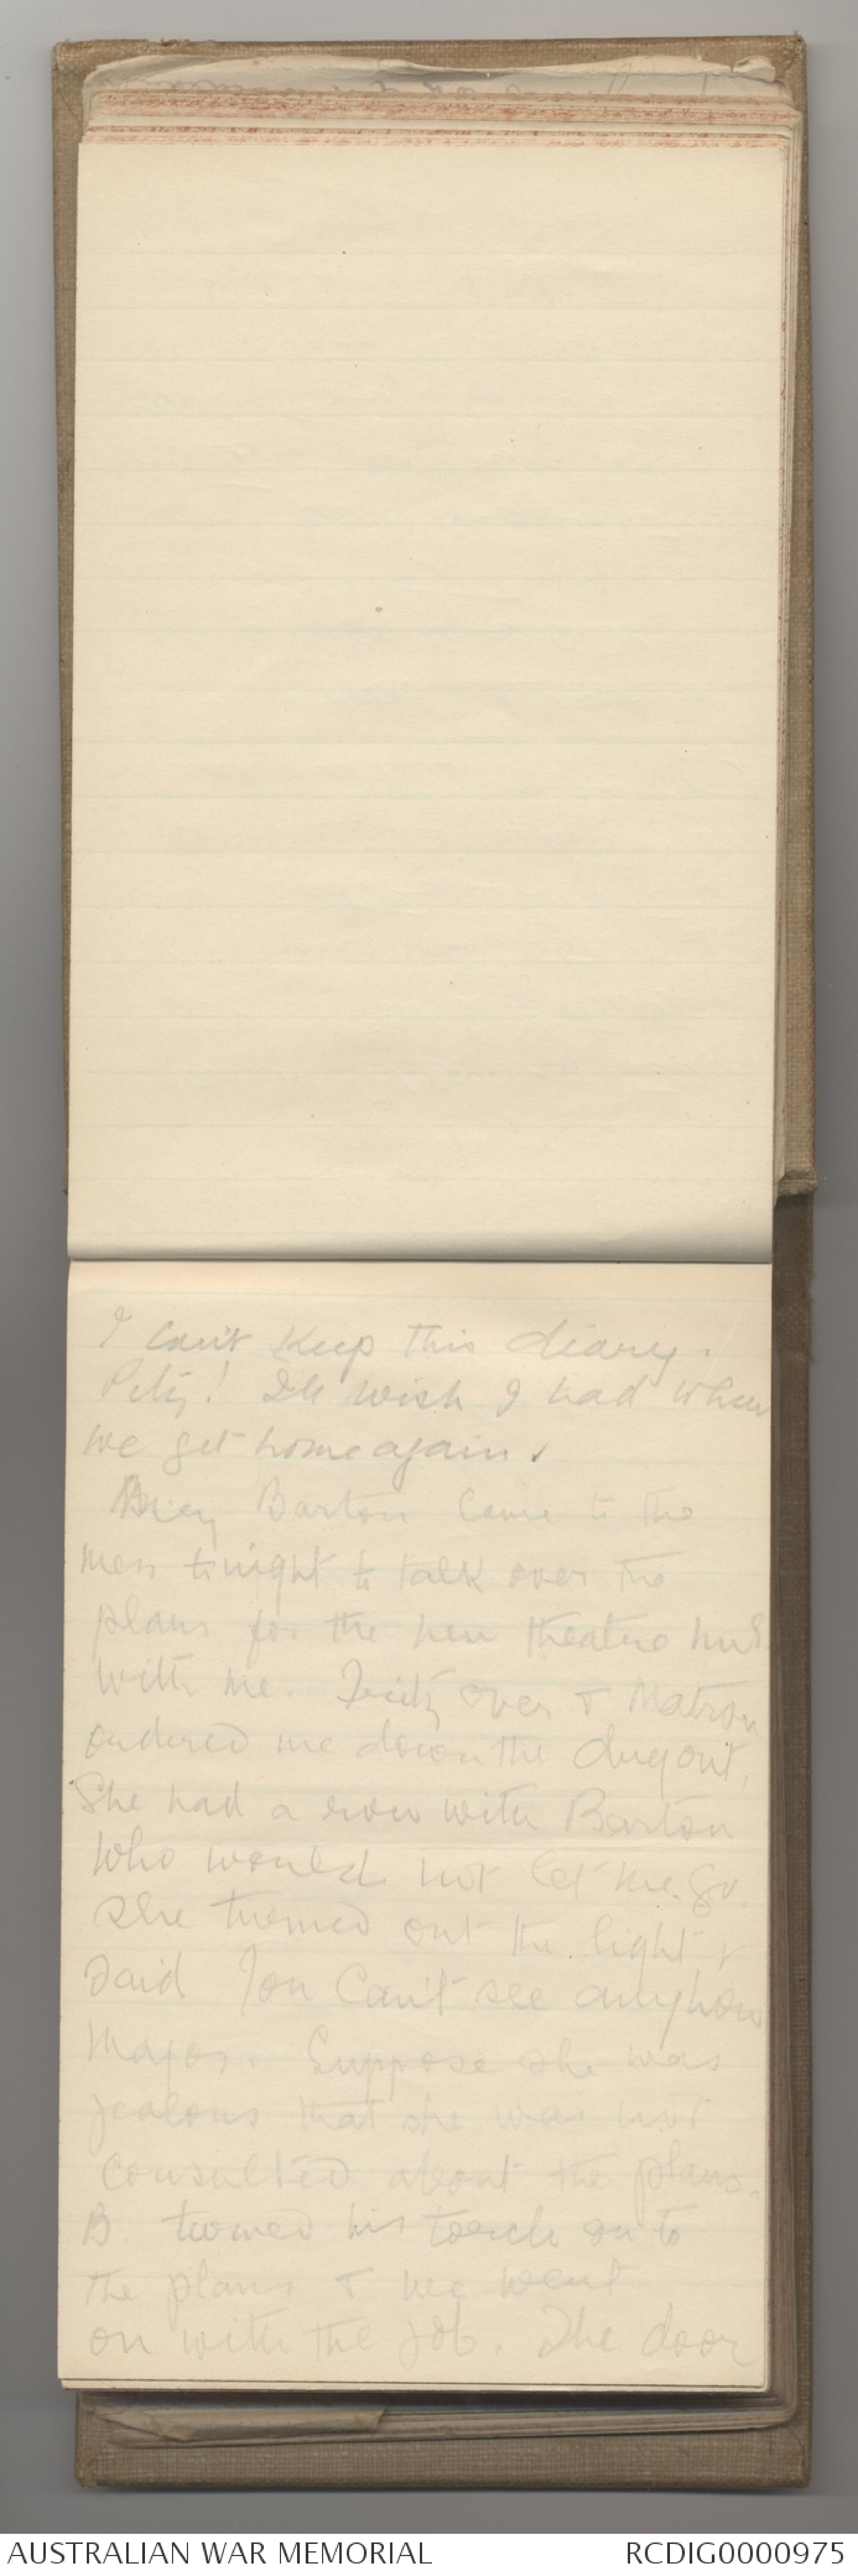 I can't keep this diary.
Pity! I'll wish I had when
we get home again.
Barton came to the
mess tonight to talk over the
plans for the new theatre hut
with me. Fritz over & Matron
ordered me down the dugout,
She had a row with Barton
who would not let me go.
She turned out the light &
said You can't see anyhow
Major. Suppose she was
jealous that she was not
consulted about the plans.
B. turned his torch on to
the plans & we went
on with the job. The door
AUSTRALIAN WAR MEMORIAL
RCDIG0000975